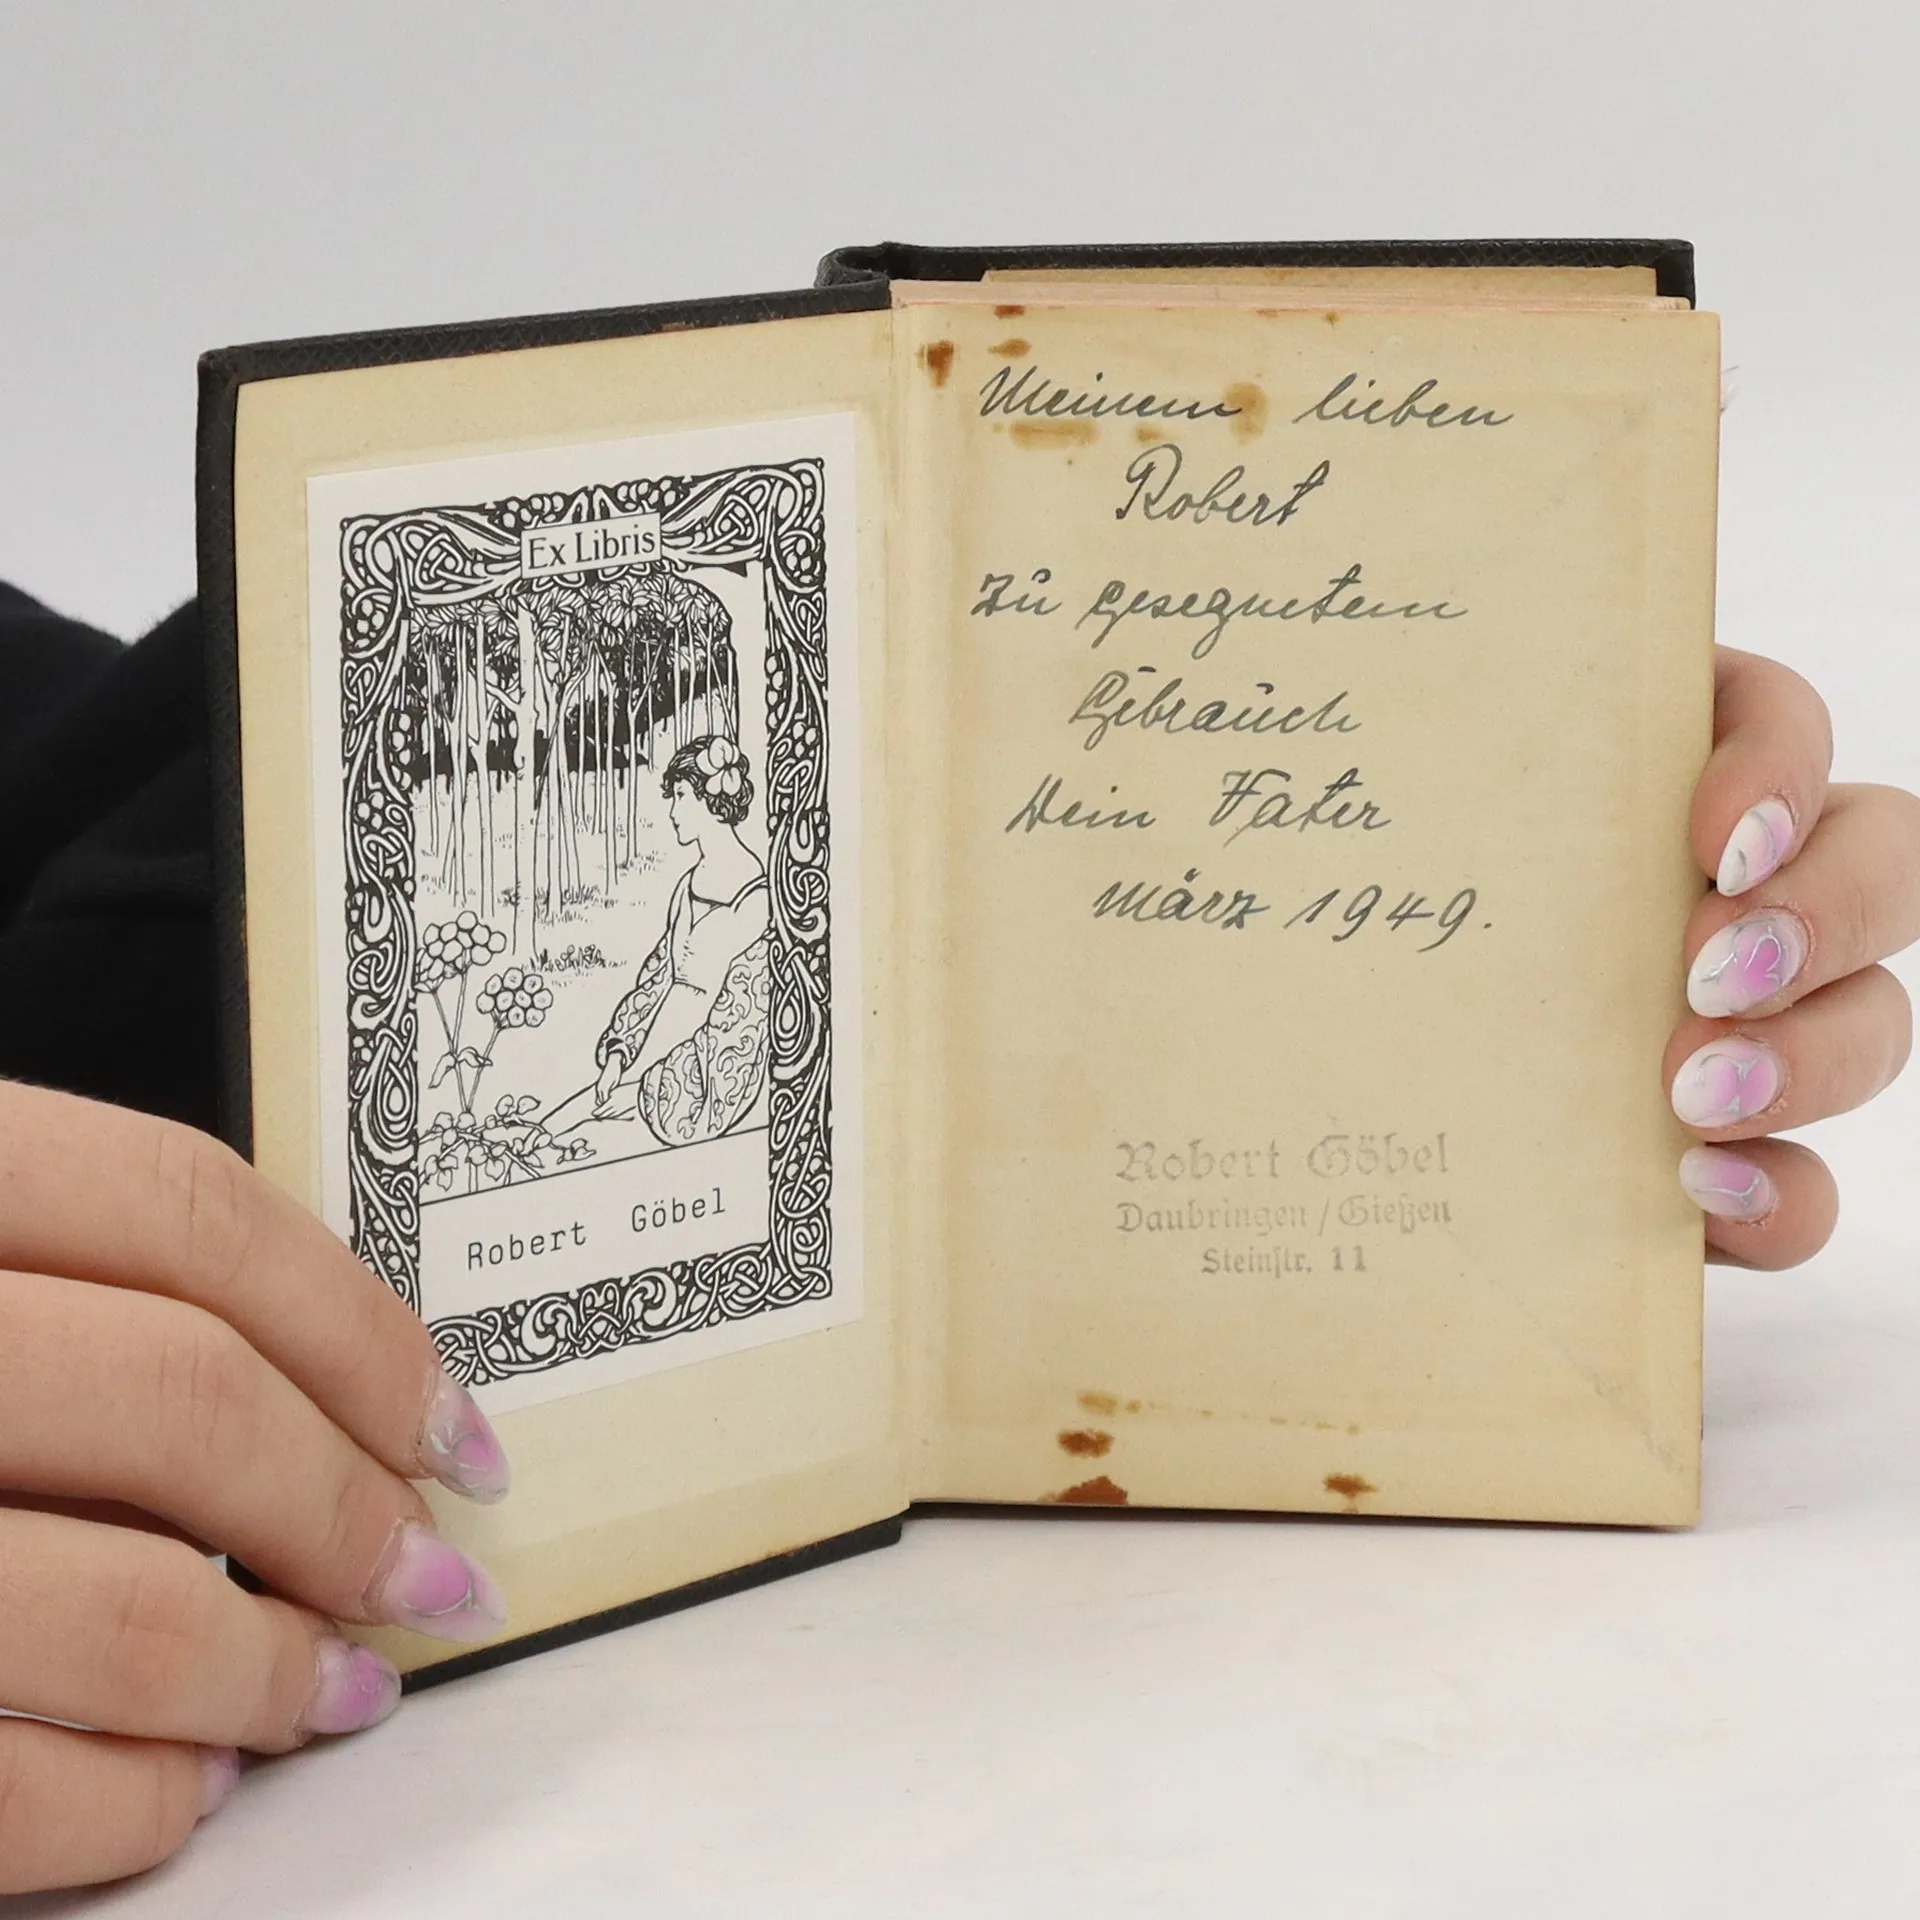 Ex Libris
Robert Göbel
Meinem lieben
Robert
zu gesegnetem
Gebrauch
Dein Vater
März 1949.
Robert Göbel
Daubringen / Gießen
Steinstr. 11